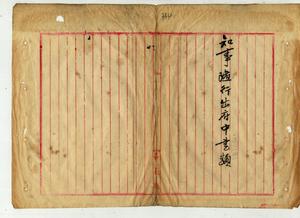 知事随行出府中書類